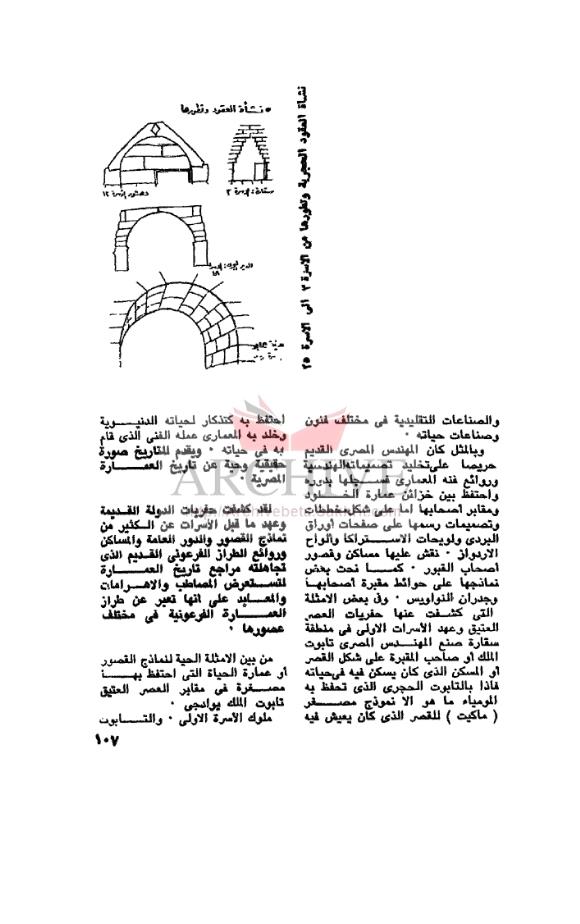 نشأة العقود الحجرية وتطورها من الاسرة ٢ الى الاسرة ٢٥
• نشأة العقود وتطورها
سقارة : اسرة ٢
دهشور اسرة ١٢
والصناعات التقليدية فى مختلف فنون
وصناعات حياته ٠
وبالمثل كان المهندس المصرى القديم
حريصا على تخليد تصميماته الهندسية
وروائع فنه المعمارى فسجلها بدوره
واحتفظ بين خزائن عمارة الخلود
ومقابر أصحابها اما على شكل مخططات
وتصميمات رسمها على صفحات أوراق
البردى ولويحات الاستراكا وألواح
الاردواز ٠ نقش عليها مساكن وقصور
أصحاب القبور ٠ كما نحت بعض
نماذجها على حوائط مقبرة أصحابها
وجدران النواويس ٠ وفى بعض الامثلة
التى كشفت عنها حفريات العصر
العتيق وعهد الأسرات الاولى فى منطقة
سقارة صنع المهندس المصرى تابوت
الملك أو صاحب المقبرة على شكل القصر
أو المسكن الذى كان يسكن فيه فى حياته
فاذا بالتابوت الحجرى الذى تحفظ به
المومياء ما هو الا نموذج مصغر
( ماكيت ) للقصر الذى كان يعيش فيه
احتفظ به كتذكار لحياته الدنيوية
وخلد به المعمارى عمله الفنى الذى قام
به فى حياته ٠ ويقدم للتاريخ صورة
حقيقية وحية عن تاريخ العمارة
المصرية ٠
لقد كشفت حفريات الدولة القديمة
وعهد ما قبل الأسرات عن الكثير من
نماذج القصور والدور العامة والمساكن
وروائع الطراز الفرعونى القديم الذى
تجاهلته مراجع تاريخ العمارة
لتستعرض المصاطب والاهرامات
والمعابد على انها تعبر عن طراز
العمارة الفرعونية فى مختلف
عصورها ٠
من بين الامثلة الحية لنماذج القصور
أو عمارة الحياة التى احتفظ بها
مصغرة فى مقابر العصر العتيق
تابوت الملك يوادجى ٠
ملوك الأسرة الاولى ٠ والتابوت
١٠٧
ARCHIVE